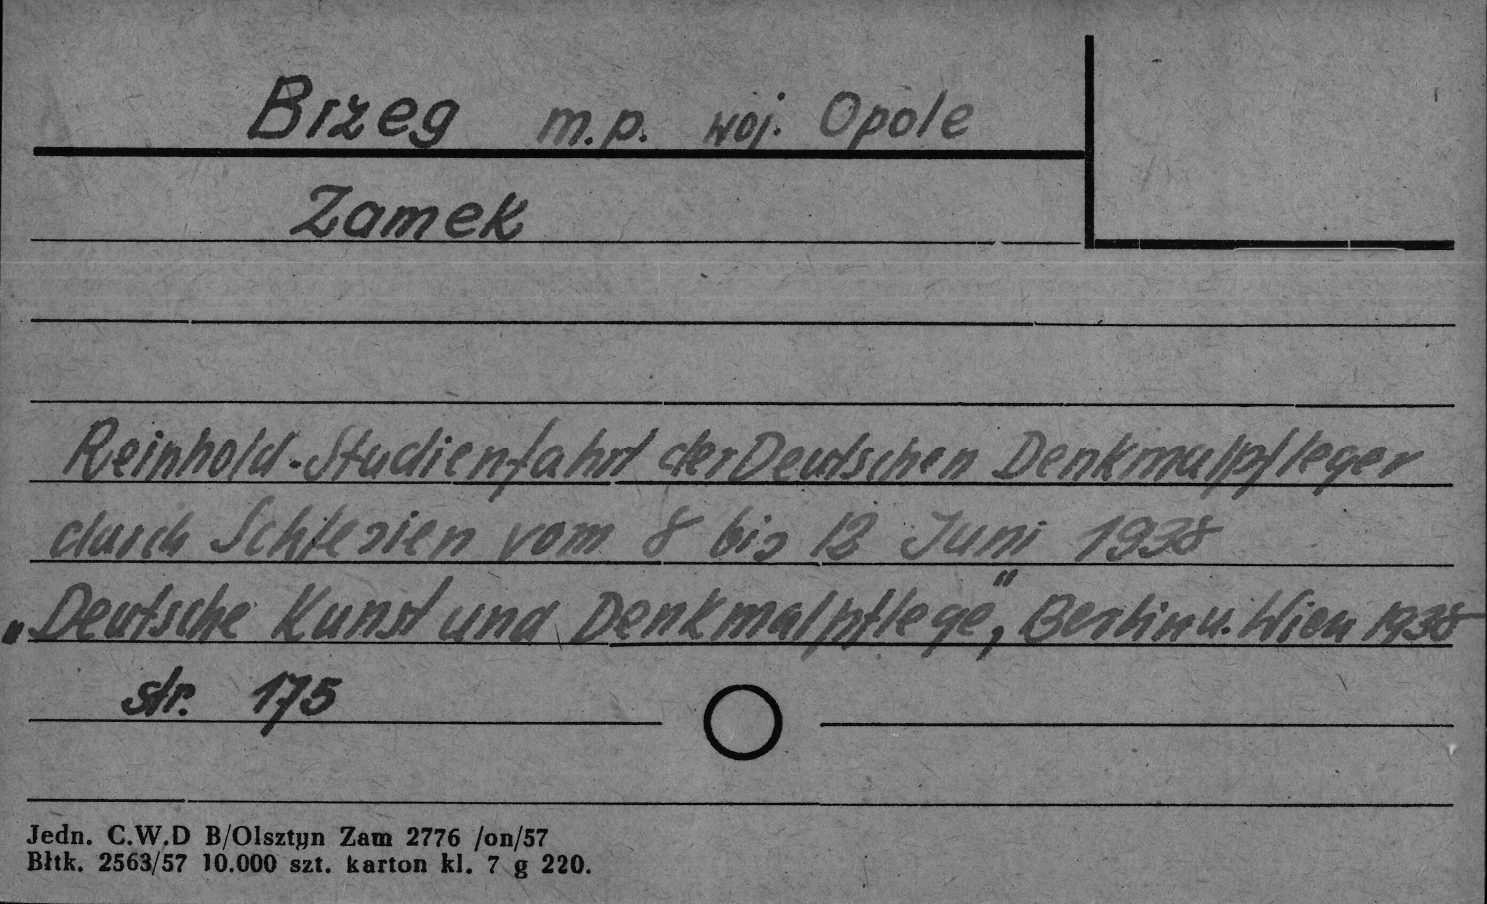 Brzeg m.p. woj. Opole
Zamek
Reinhold-Studienfahrt der Deutschen Denkmalpfleger
durch Schlesien vom 8 bis 12 Juni 1938
„Deutsche Kunst und Denkmalpflege", Berlin u. Wien 1938
str. 175
Jedn. C.W.D B/Olsztyn Zam 2776 /on/57
Błtk. 2563/57 10.000 szt. karton kl. 7 g 220.